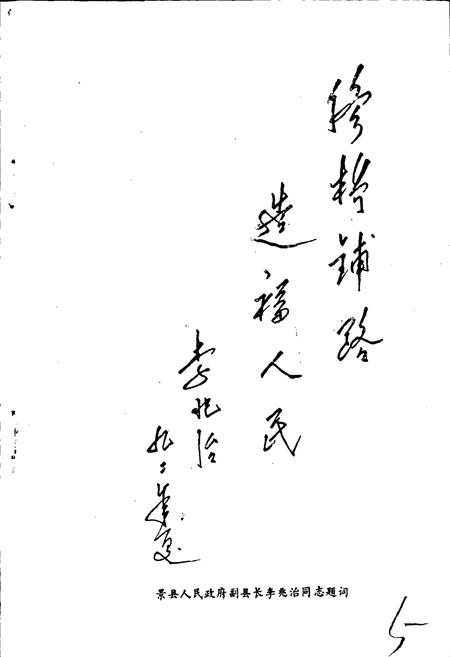 修桥铺路
造福人民
李兆治
九二年夏
景县人民政府副县长李兆治同志题词